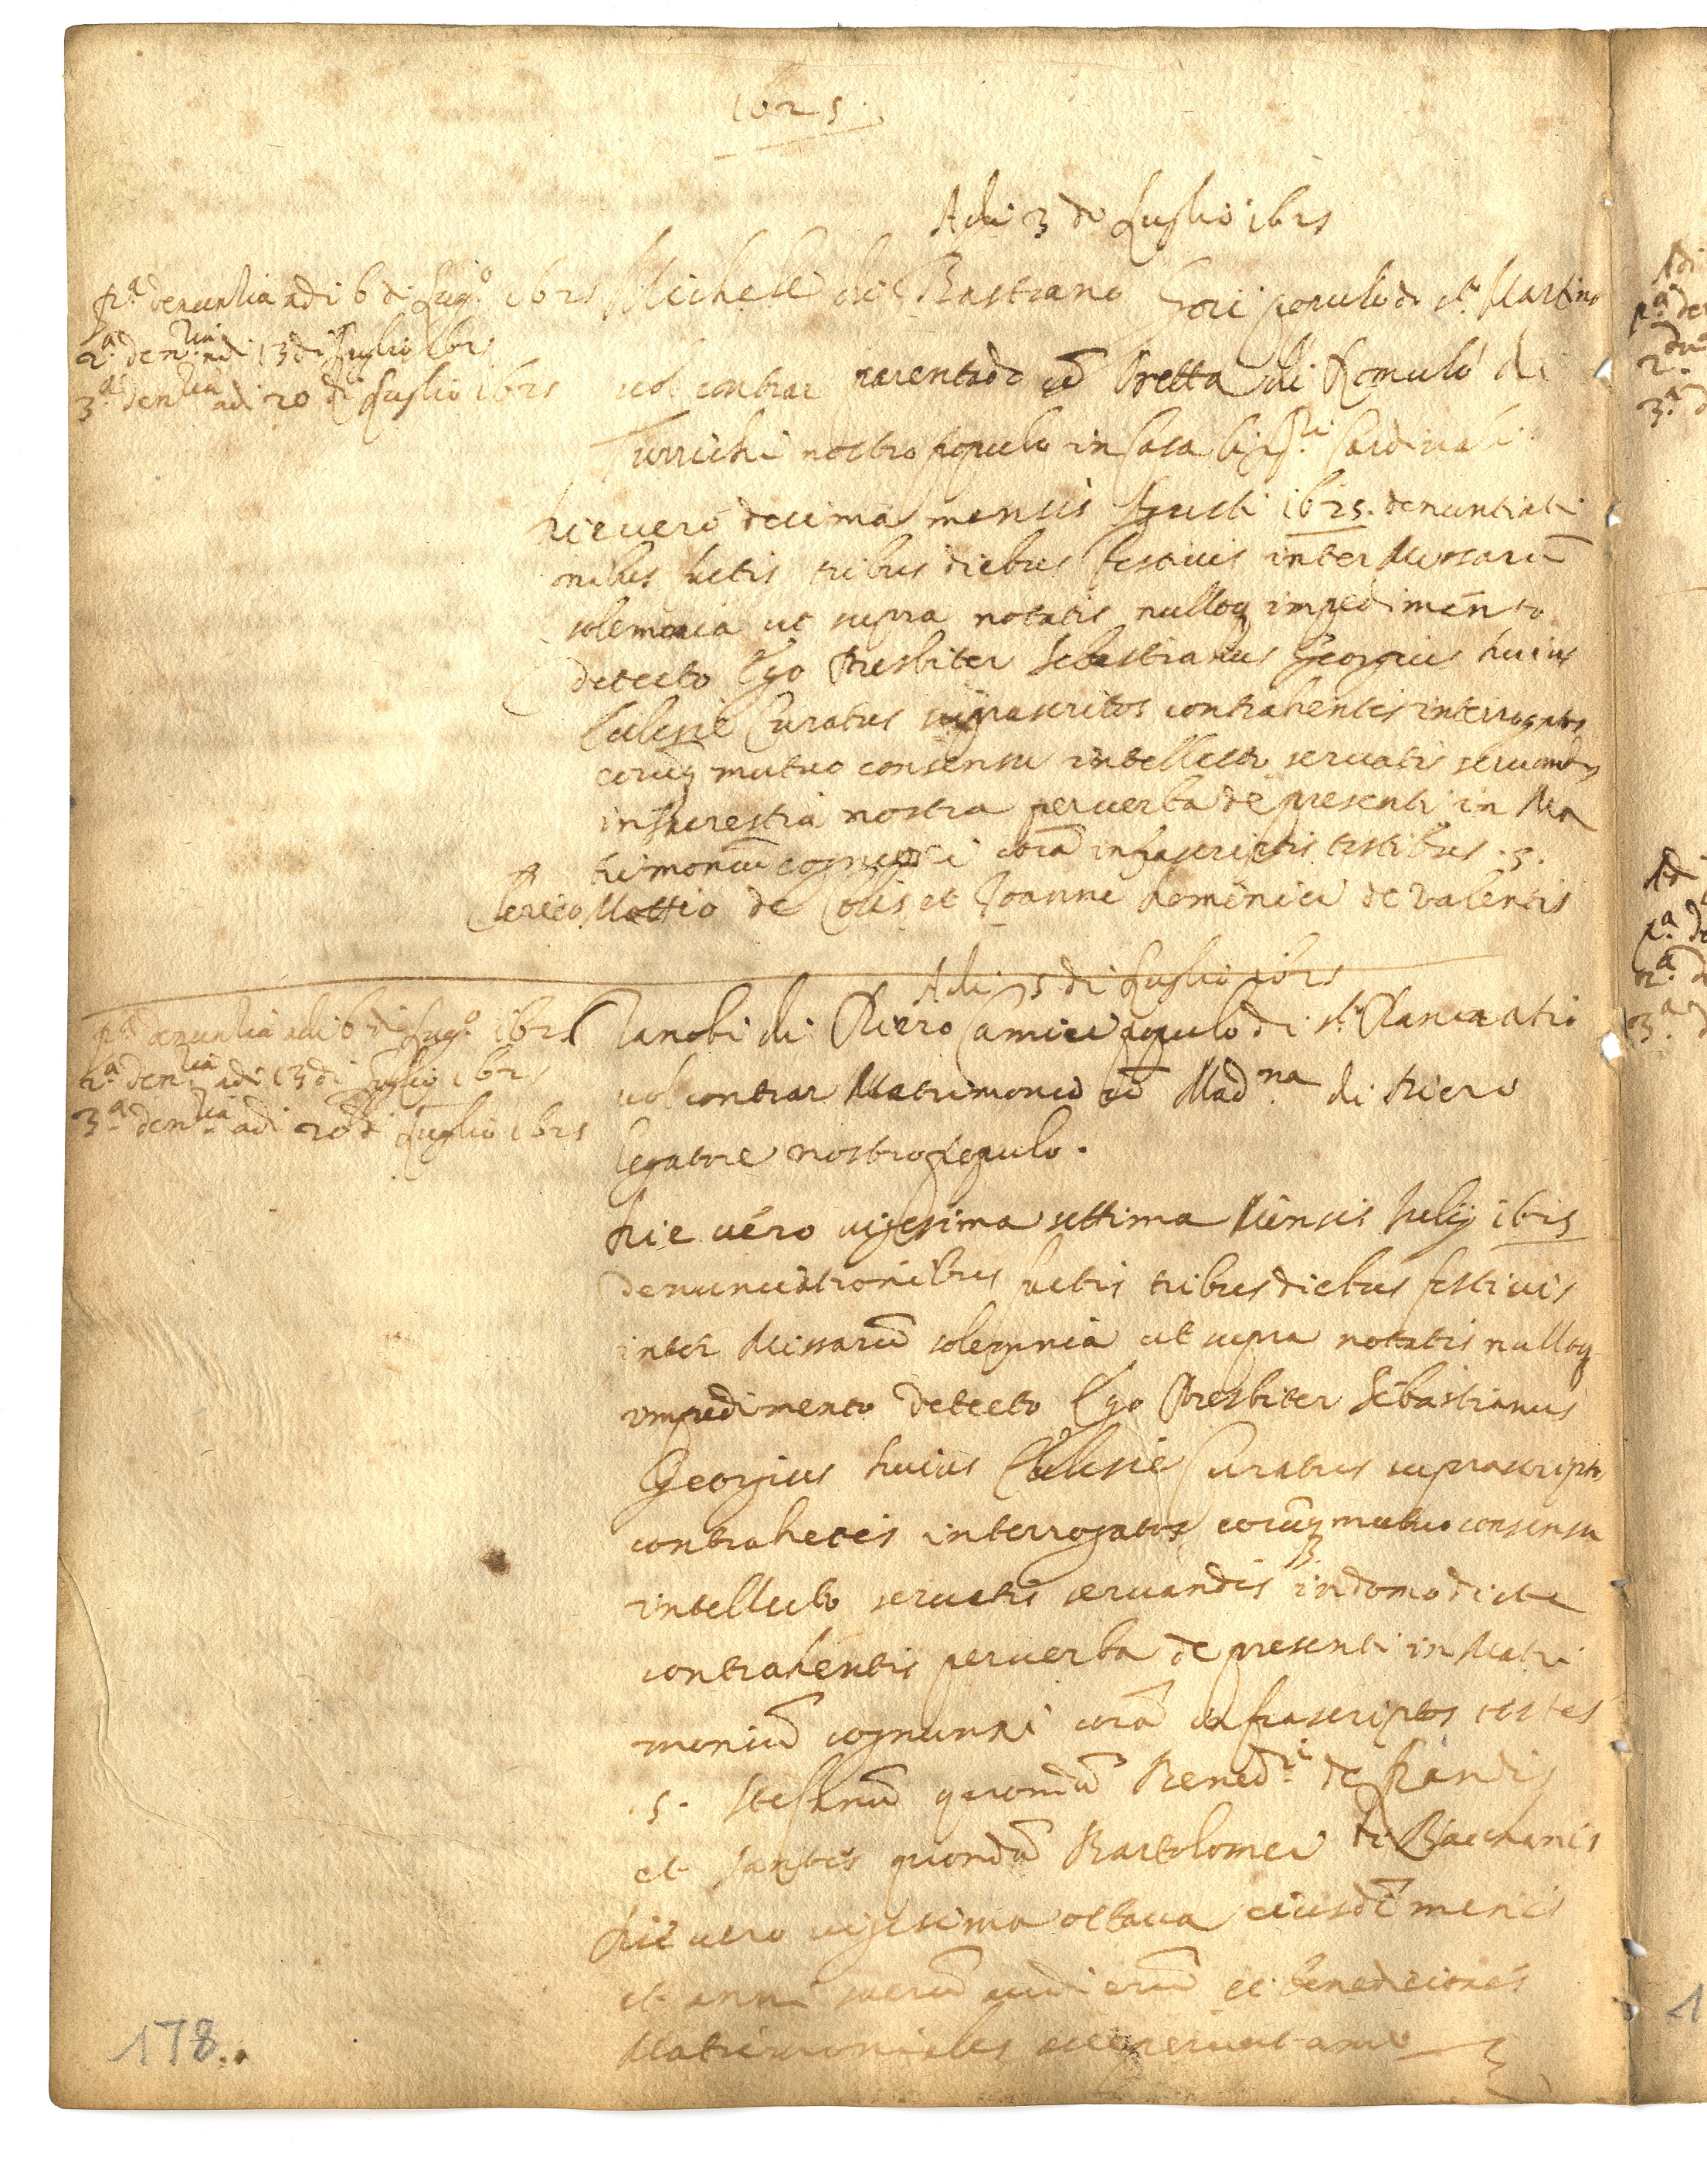 1625.
Adi 3 di Luglio 1625
pª denuntia adi 6 di Lugº 1625
2ª den.tia adi 13 di Luglio 1625
3ª den.tia adi 20 di Luglio 1625
Michele di Bastiano Gori populo di Sto Martino
vol contrar parentado cō Oretta di Romulo di
Turrichi nostro populo in casa
Die vero decima mensis Agusti 1625. denuntiati
onibus factis tribus diebus festivis inter Missarū
solemnia ut supra notatis nulloq impedimento
detecto Ego Presbiter Sebastianus Georgius huius
Eclesie Curatus suprascritos contrahentis interrogatos
eorūq mutuo consensu intellecto servatis servandis
in sacrestia nostra per verba de presenti in Ma
trimoniū cognunsi corā infrascriptis testibus .s.
Clerico Mattio de et Joanne Domenici de Valentis
Adi 5 di Luglio 1625
pª denuntia adi 6 di Lugº 1625
2ª den.tia adi 13 di Luglio 1625
3ª den.tia adi 20 di Luglio 1625
Zanobi di Piero Camici populo di Sto Pancratio
vol contrar Matrimonio cō Mad.na di Piero
legatore nostro populo.
Die vero vigesima settima Mensis Julij 1625
denunciationibus factis tribus diebus festivis
inter Missarū solemnia ut supra notatis nulloq
impedimento detecto Ego Presbiter Sebastianus
Georgius huius Eclesie Curatus suprascriptos
contrahetes interrogatos eorūq mutuo consensu
intellecto servatis servandis in domo dicte
contrahentis per verba de presenti in Matri
moniū cognunxi corā infrascriptos testes
.s. Stefanū quondā Bened.i de
et Santes quondā Bartolomei de
Die vero vigesima ottava eiusdē mensis
et anni benediciones
Matrimoniales acceperunt
178.